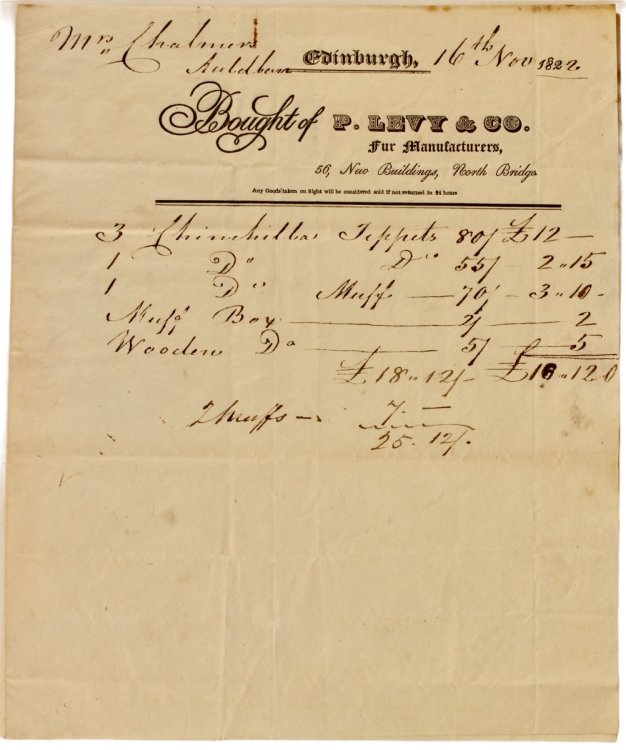 Mrs Chalmers
Auldbar Edinburgh, 16th Nov 1822.
Bought of P. LEVY & CO.
Fur Manufacturers,
56, New Buildings, North Bridge
Any Goods taken on Sight will be considered sold if not returned in 24 hours
3 Chinchilla Teppets 80/ £12 —
1 Do Do 55/ 2 " 15
1 Do Muff — 70/ — 3 " 10 -
Muff Box — 2/ — 2
Wooden Do — 5/ 5
£18 " 12/- £18 " 12 0
2 Muffs — 7. —
25. 12/.